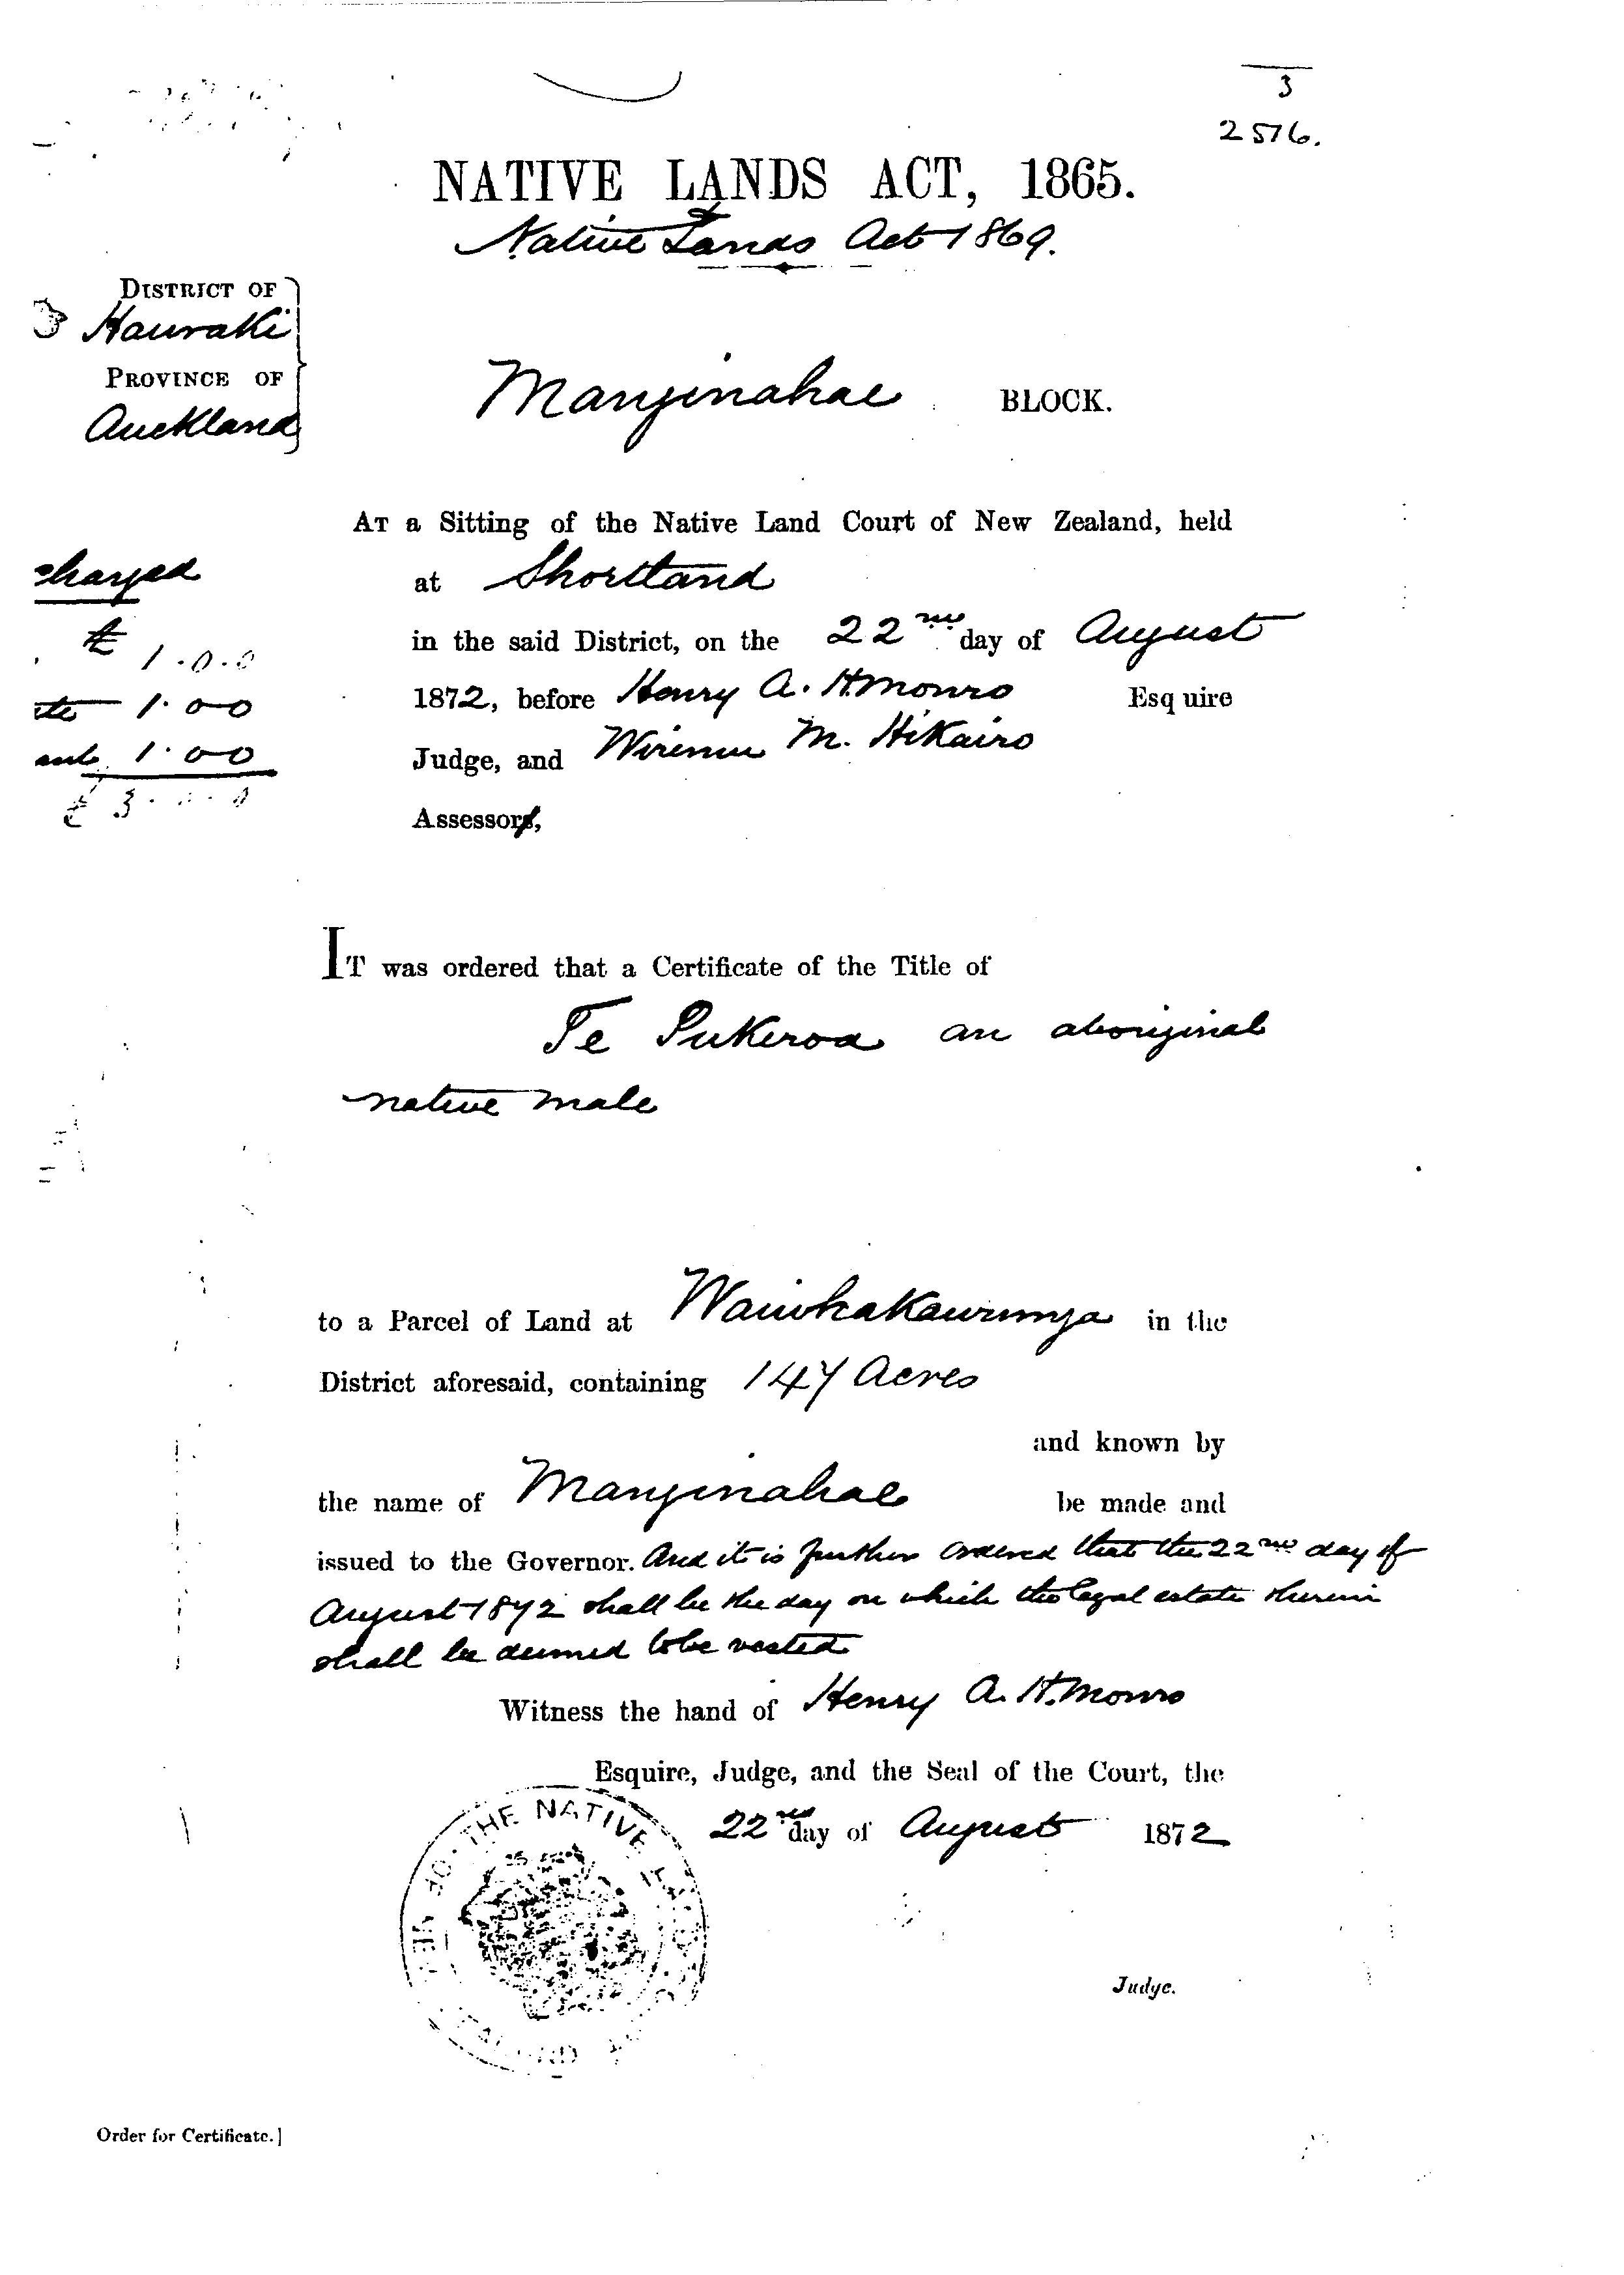 3
2576.
NATIVE LANDS ACT, 1865.
& Native Lands Act 1869.
DISTRICT OF
Hauraki
PROVINCE OF
Auckland
Manginahae BLOCK.
AT a Sitting of the Native Land Court of New Zealand, held
at Shortland
in the said District, on the 22nd day of August
1872, before Henry A. H. Monro Esquire
Judge, and Wiremu M. Hikairo
Assessor,
charged
£ 1.0.0
1.00
1.00
£ 3
IT was ordered that a Certificate of the Title of
Te Pukeroa an aboriginal
native male
to a Parcel of Land at Waiwhakaurunga in the
District aforesaid, containing 147 Acres
and known by
the name of Manginahae be made and
issued to the Governor. And it is further ordered that the 22nd day of
August 1872 shall be the day on which the legal estate therein
shall be deemed to be vested
Witness the hand of Henry A. H. Monro
Esquire, Judge, and the Seal of the Court, the
22nd day of August 1872
OF THE NATIVE
Judge.
Order for Certificate.]